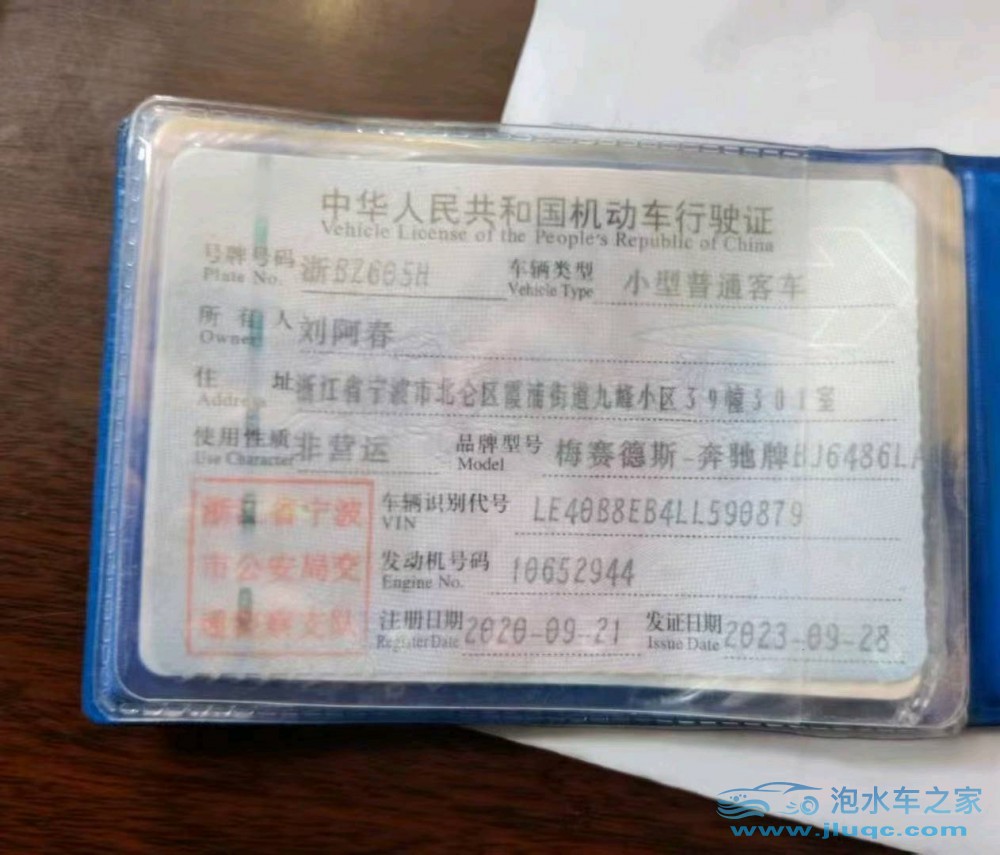 中华人民共和国机动车行驶证
Vehicle License of the People's Republic of China
号牌号码 浙BZ605H 车辆类型 小型普通客车
Plate No. Vehicle Type
所有人 刘阿春
Owner
住址 浙江省宁波市北仑区霞浦街道九峰小区39幢301室
Address
使用性质 非营运 品牌型号 梅赛德斯-奔驰牌BJ6486LA
Use Character Model
浙江省宁波
市公安局交
通警察支队
车辆识别代号 LE40B8EB4LL590879
VIN
发动机号码 10652944
Engine No.
注册日期 2020-09-21 发证日期 2023-09-28
Register Date Issue Date
泡水车之家
www.jluqc.com